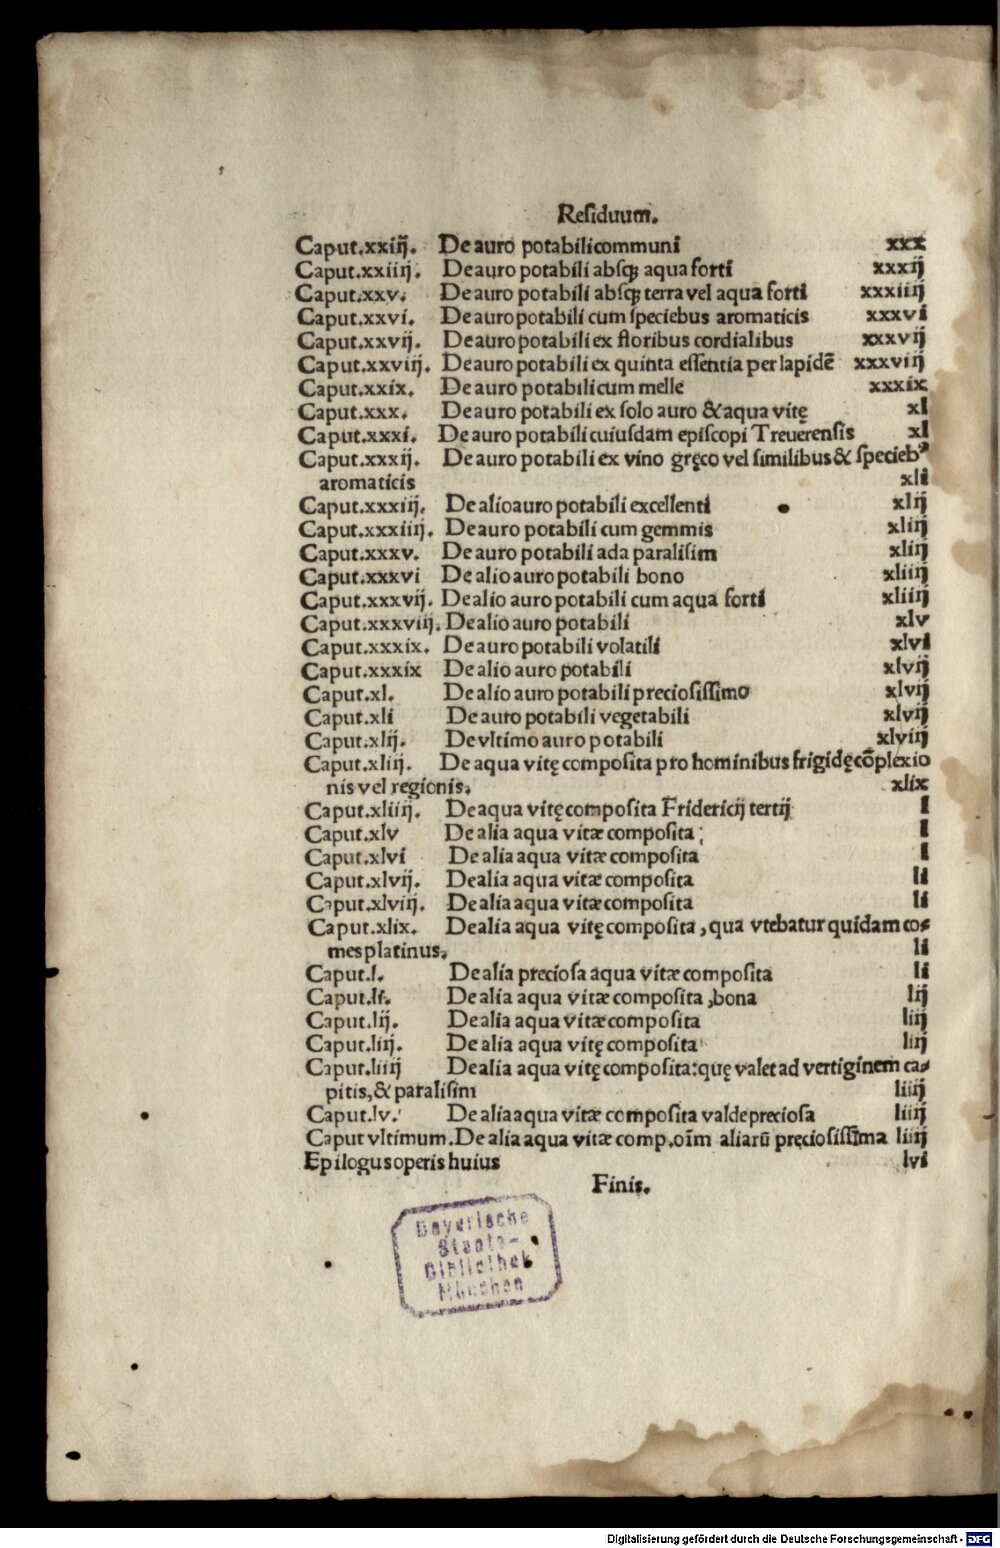 Residuum.
Caput.xxiij. De auro potabili communi xxx
Caput.xxiiij. De auro potabili absq; aqua forti xxxij
Caput.xxv. De auro potabili absq; terra vel aqua forti xxxiiij
Caput.xxvi. De auro potabili cum speciebus aromaticis xxxvi
Caput.xxvij. De auro potabili ex floribus cordialibus xxxvij
Caput.xxviij. De auro potabili ex quinta essentia per lapidē xxxviij
Caput.xxix. De auro potabili cum melle xxxix
Caput.xxx. De auro potabili ex solo auro & aqua vitę xl
Caput.xxxi. De auro potabili cuiusdam episcopi Treuerensis xl
Caput.xxxij. De auro potabili ex vino gręco vel similibus & specieb⁹
aromaticis xli
Caput.xxxiij. De alio auro potabili excellenti xlij
Caput.xxxiiij. De auro potabili cum gemmis xliij
Caput.xxxv. De auro potabili ada paralisim xliij
Caput.xxxvi De alio auro potabili bono xliiij
Caput.xxxvij. De alio auro potabili cum aqua forti xliiij
Caput.xxxviij. De alio auro potabili xlv
Caput.xxxix. De auro potabili volatili xlvi
Caput.xxxix De alio auro potabili xlvij
Caput.xl. De alio auro potabili preciosissimo xlvij
Caput.xli De auro potabili vegetabili xlvij
Caput.xlij. De vltimo auro potabili xlviij
Caput.xliij. De aqua vitę composita pro hominibus frigidę cōplexio
nis vel regionis. xlix
Caput.xliiij. De aqua vitę composita Fridericij tertij l
Caput.xlv De alia aqua vitæ composita l
Caput.xlvi De alia aqua vitæ composita l
Caput.xlvij. De alia aqua vitæ composita li
Caput.xlviij. De alia aqua vitæ composita li
Caput.xlix. De alia aqua vitę composita, qua vtebatur quidam co⸗
mes platinus. li
Caput.l. De alia preciosa aqua vitæ composita li
Caput.li. De alia aqua vitæ composita, bona lij
Caput.lij. De alia aqua vitæ composita liij
Caput.liij. De alia aqua vitę composita liij
Caput.liiij De alia aqua vitę composita: quę valet ad vertiginem ca⸗
pitis, & paralisim liiij
Caput.lv. De alia aqua vitæ composita valde preciosa liiij
Caput vltimum. De alia aqua vitæ comp. oīm aliarū pręciosissima liiij
Epilogus operis huius lvi
Finis.
Bayerische
Staats-
Bibliothek
München
Digitalisierung gefördert durch die Deutsche Forschungsgemeinschaft - DFG